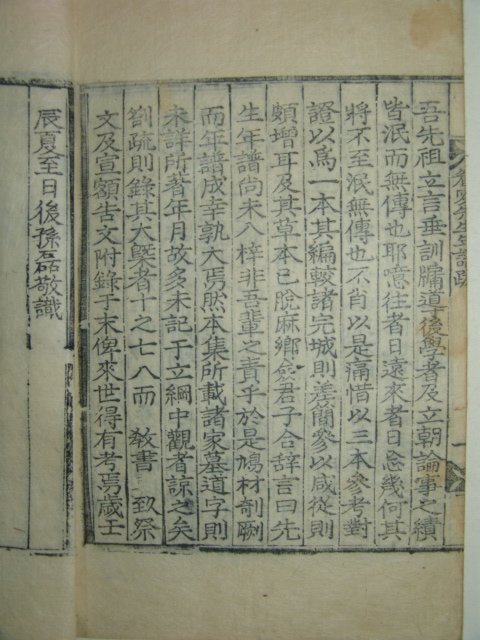 吾先祖立言垂訓牖導後學者及立朝論事之績
皆泯而無傳也耶噫往者日遠來者日忘幾何其
將不至泯無傳也不肖以是痛惜以三本參考對
證以爲一本其編較諸完城則差閒參以咸從則
頗增耳及其草本已脫麻鄕僉君子合辭言曰先
生年譜尙未入梓非吾輩之責乎於是鳩材剞劂
而年譜成幸孰大焉然本集所載諸家墓道字則
未詳所著年月故多未記于立綱中觀者諒之矣
劄疏則錄其大槩者十之七八而 敎書 致祭
文及宣額告文附錄于末俾來世得有考焉歲壬
辰夏至日後孫磊敬識
年譜跋